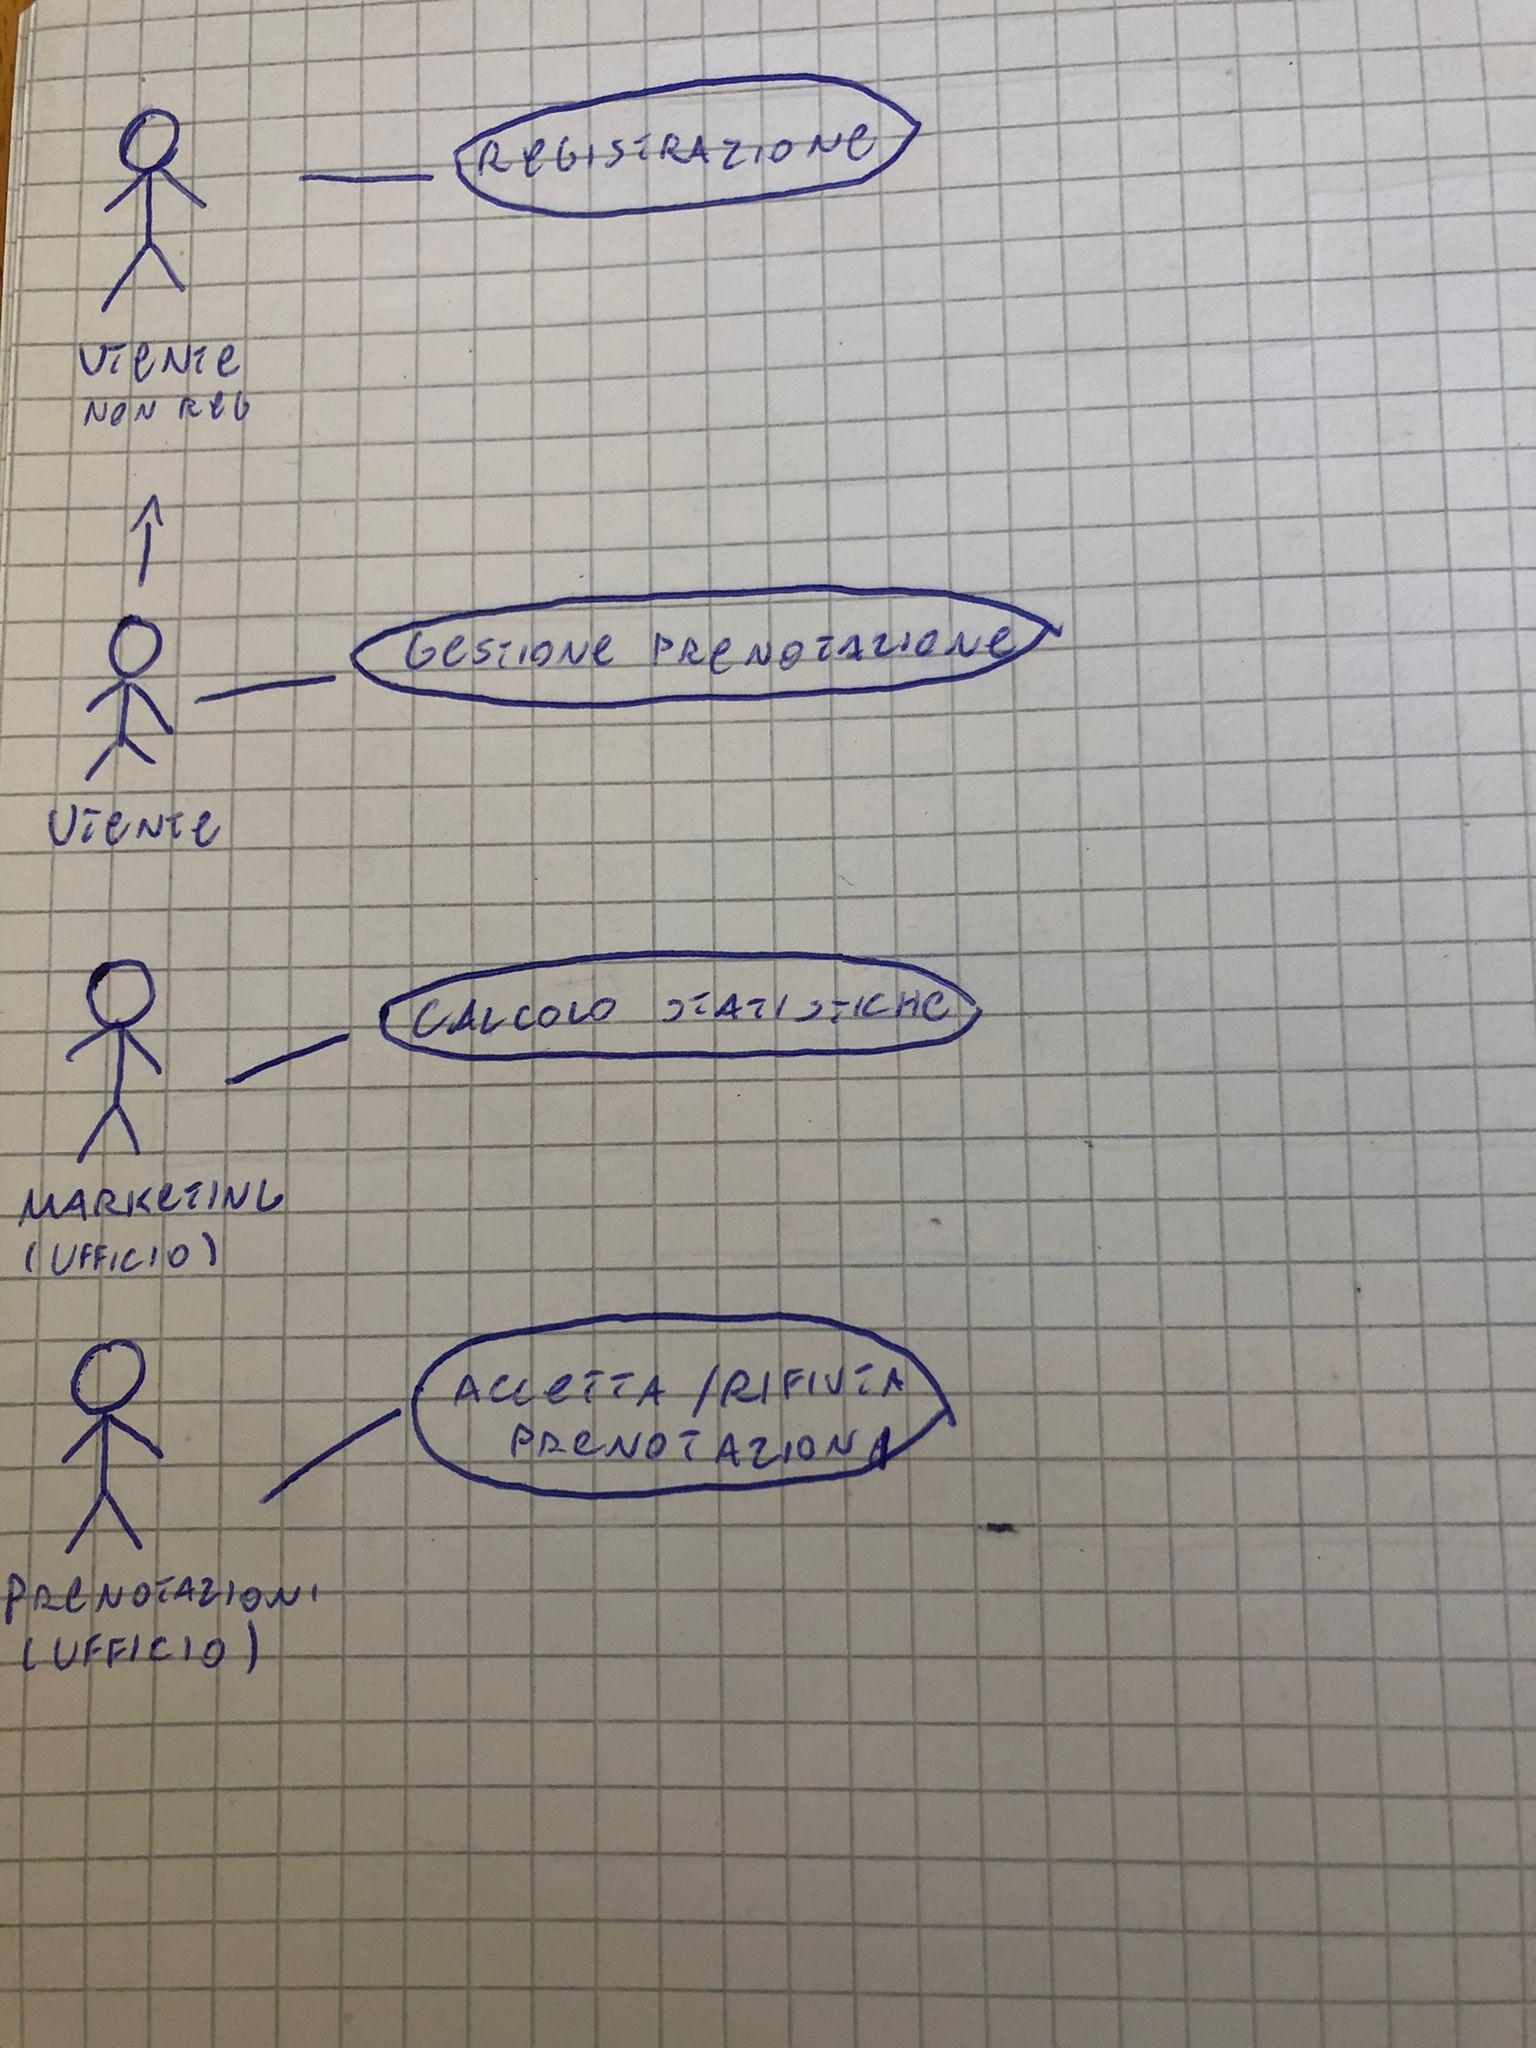 REGISTRAZIONE
UTENTE
NON REG
GESTIONE PRENOTAZIONE
UTENTE
CALCOLO STATISTICHE
MARKETING
(UFFICIO)
ACCETTA / RIFIUTA
PRENOTAZIONI
PRENOTAZIONI
(UFFICIO)